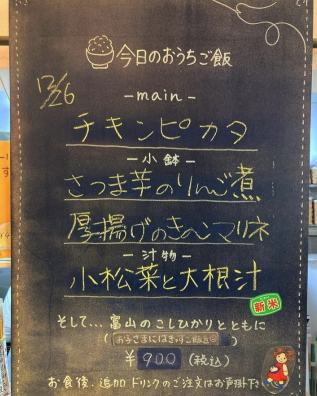 今日のおうちご飯
12/26
-main-
チキンピカタ
-小鉢-
さつま芋のりんご煮
厚揚げのきヘンマリネ
-汁物-
小松菜と大根汁
新米
そして...富山のこしひかりとともに
(お子さまには
¥900(税込)
お食後、追加ドリンクのご注文はお声掛け下